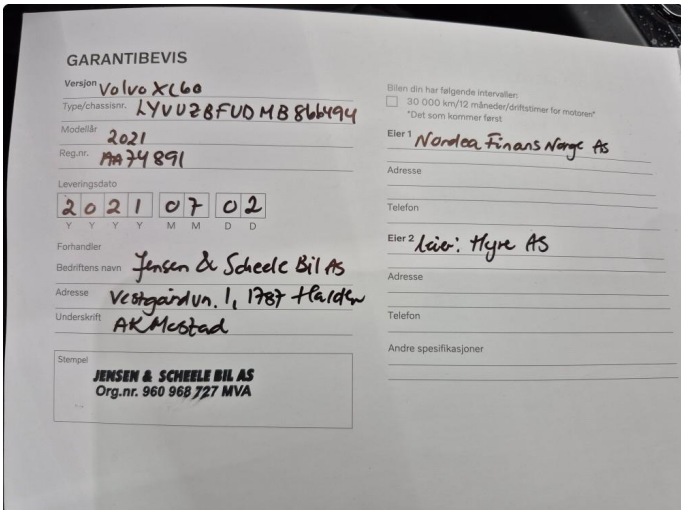 GARANTIBEVIS
Versjon Volvo XC60
Type/chassisnr. LYVUZBFUDMB866494
Modellår 2021
Reg.nr. AA74891
Leveringsdato
2 0 2 1 0 7 0 2
Y Y Y Y M M D D
Forhandler
Bedriftens navn Jensen & Scheele Bil AS
Adresse Vestgårdvn. 1, 1787 Halden
Underskrift AKMestad
Stempel
JENSEN & SCHEELE BIL AS
Org.nr. 960 968 727 MVA
Bilen din har følgende intervaller:
30 000 km/12 måneder/driftstimer for motoren*
*Det som kommer først
Eier 1 Nordea Finans Norge AS
Adresse
Telefon
Eier 2 Leier: Hyre AS
Adresse
Telefon
Andre spesifikasjoner